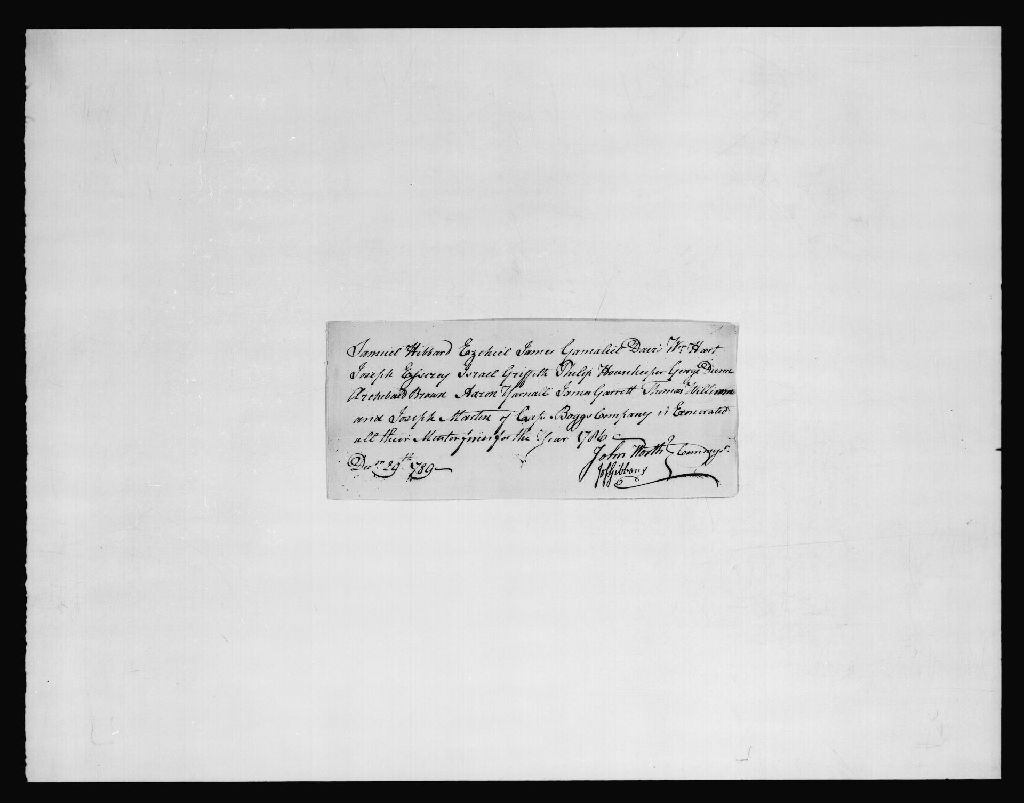 Samuel Hibbard Ezekiel James Gamaliel Davis Wm Hart
Joseph Israel Griffith Philip George
Archebald Brown Aaron Yarnall James Garrett Thomas Williamson
and Joseph Marten of Capt. Boggs Company is Exonerated
all their Muster fines for the Year 1786
Decr 29th 1789
John North
Js Gibbons